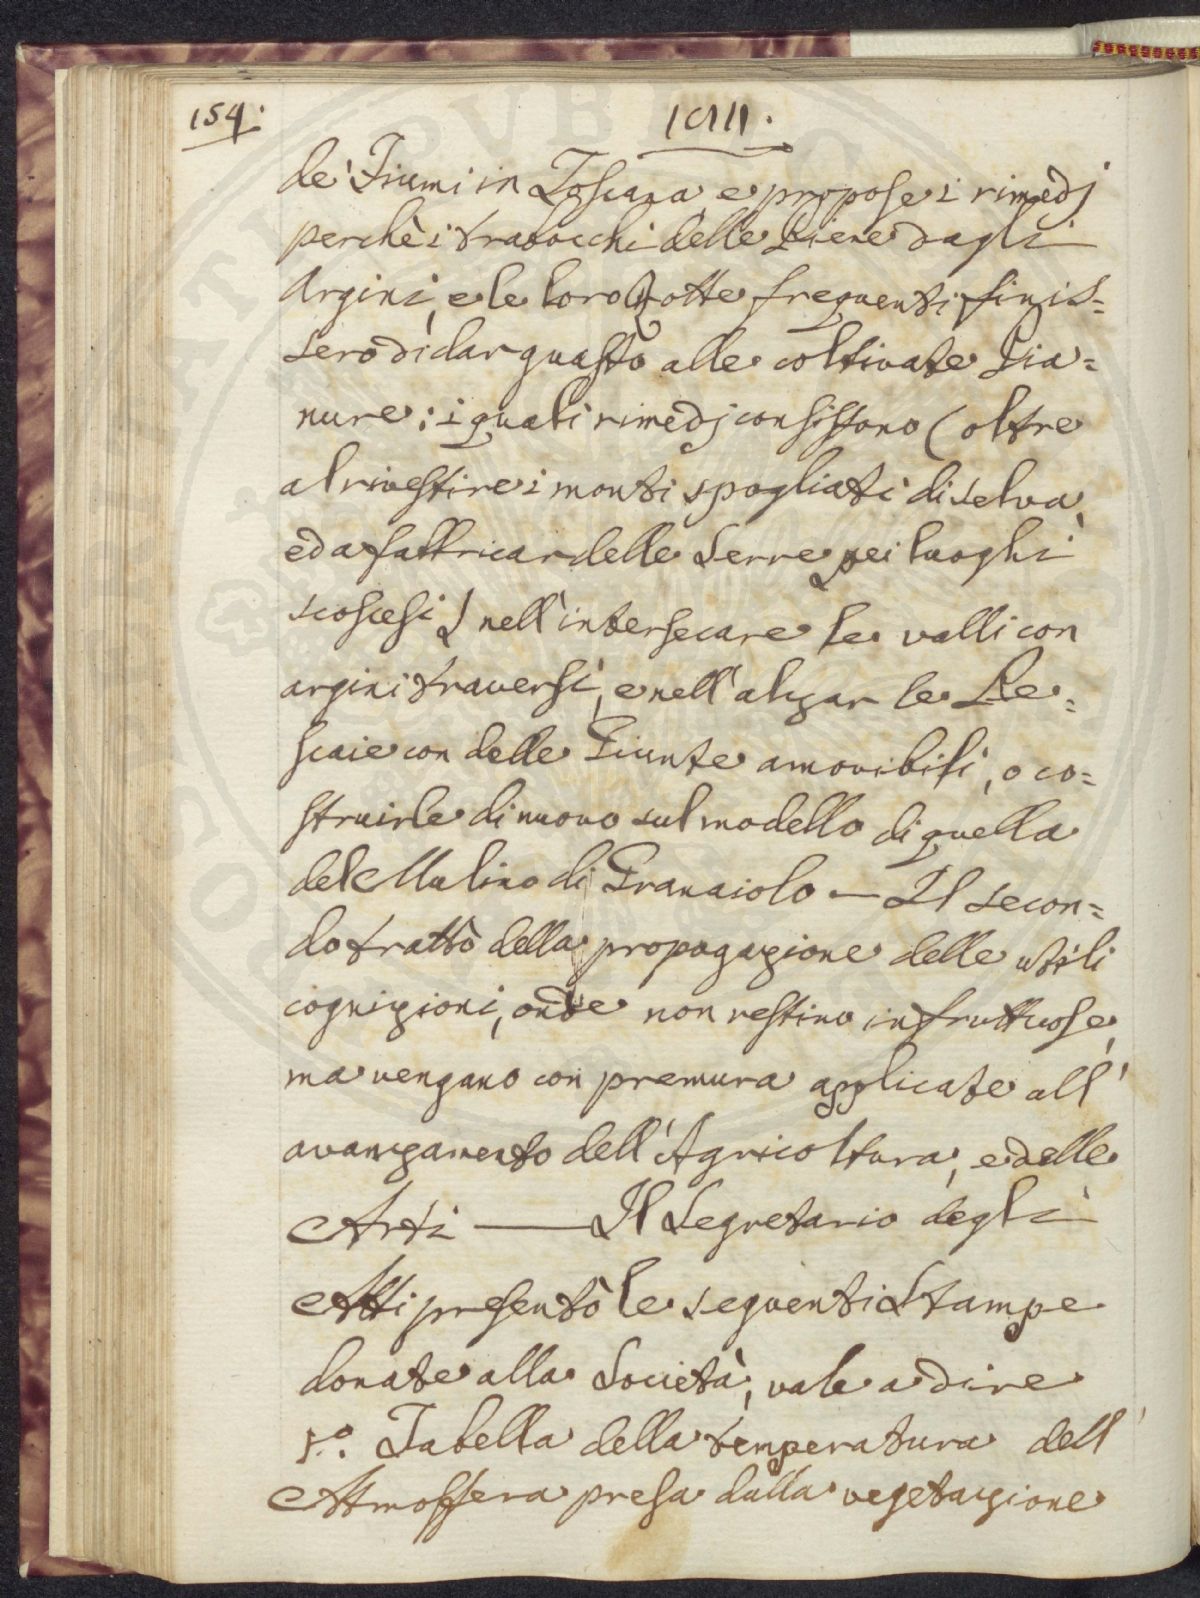 154.
1811.
de' Fiumi in Toscana e propose i rimedj
perchè i trabocchi delle Piene dagli
Argini, e le loro Rotte frequenti finis=
sero di dar guasto alle coltivate Pia=
nure; i quali rimedj consistono (oltre
al rivestire i monti spogliati di selva,
ed a fabbricar delle Serre nei luoghi
scoscesi) nell'intersecare le valli con
argini traversi, e nell'alzar le Pe=
scaie con delle Giunte amovibili, o co=
struirle di nuovo sul modello di quella
del Mulino di Granaiolo — Il secon=
do trattò della propagazione delle utili
cognizioni, onde non restino infruttuose,
ma vengano con premura applicate all'
avanzamento dell'Agricoltura, e delle
Arti — Il Segretario degli
Atti presentò le seguenti Stampe
donate alla Società, vale a dire
1.° Tabella della temperatura dell'
Atmosfera presa dalla vegetazione